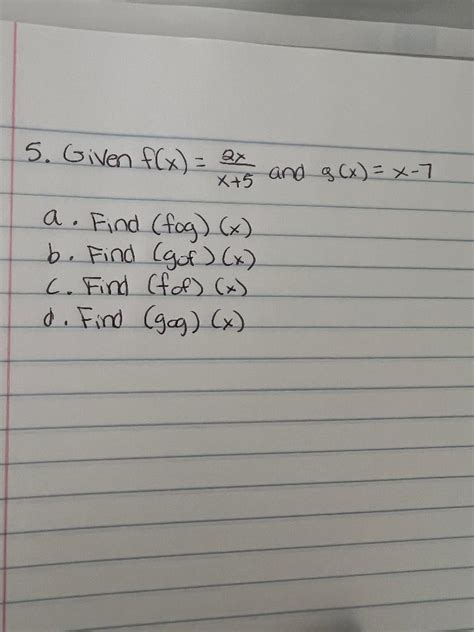 5. Given f(x) = 2x/x+5 and g(x) = x-7
a. Find (fog)(x)
b. Find (gof)(x)
c. Find (fof)(x)
d. Find (gog)(x)